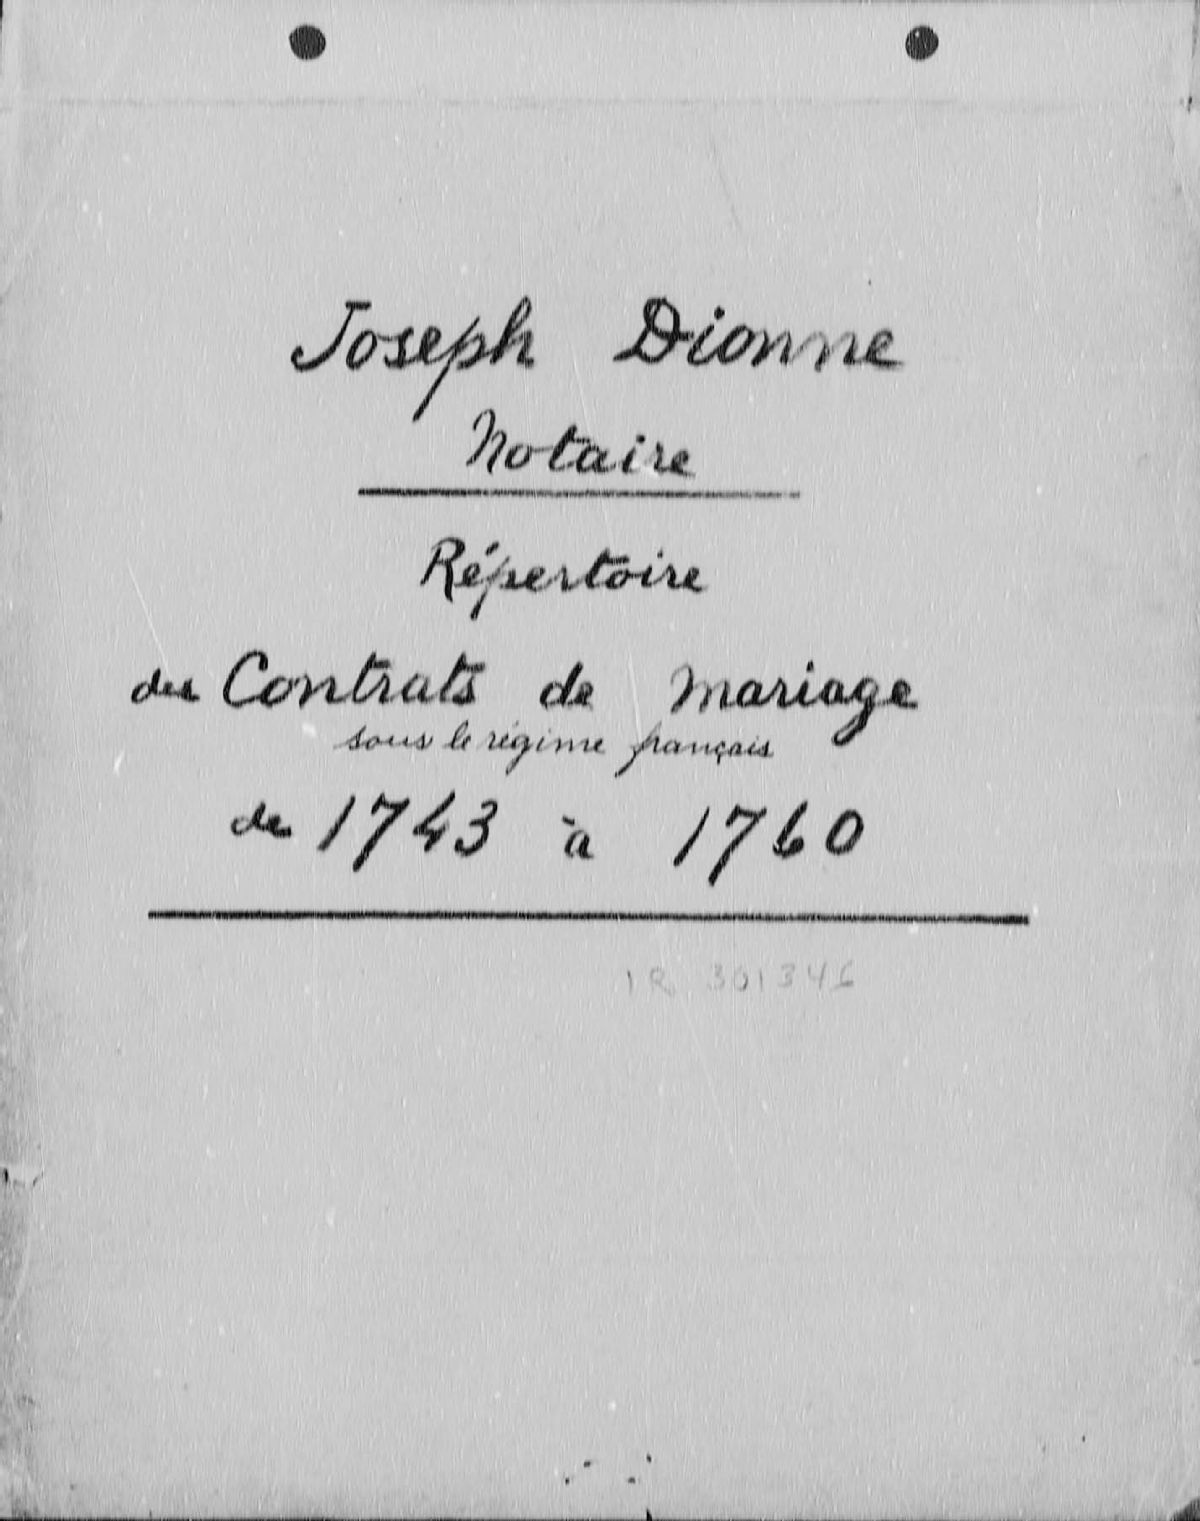 Joseph Dionne
Notaire
Répertoire
des Contrats de Mariage
sous le régime français
de 1743 à 1760
IR 301346